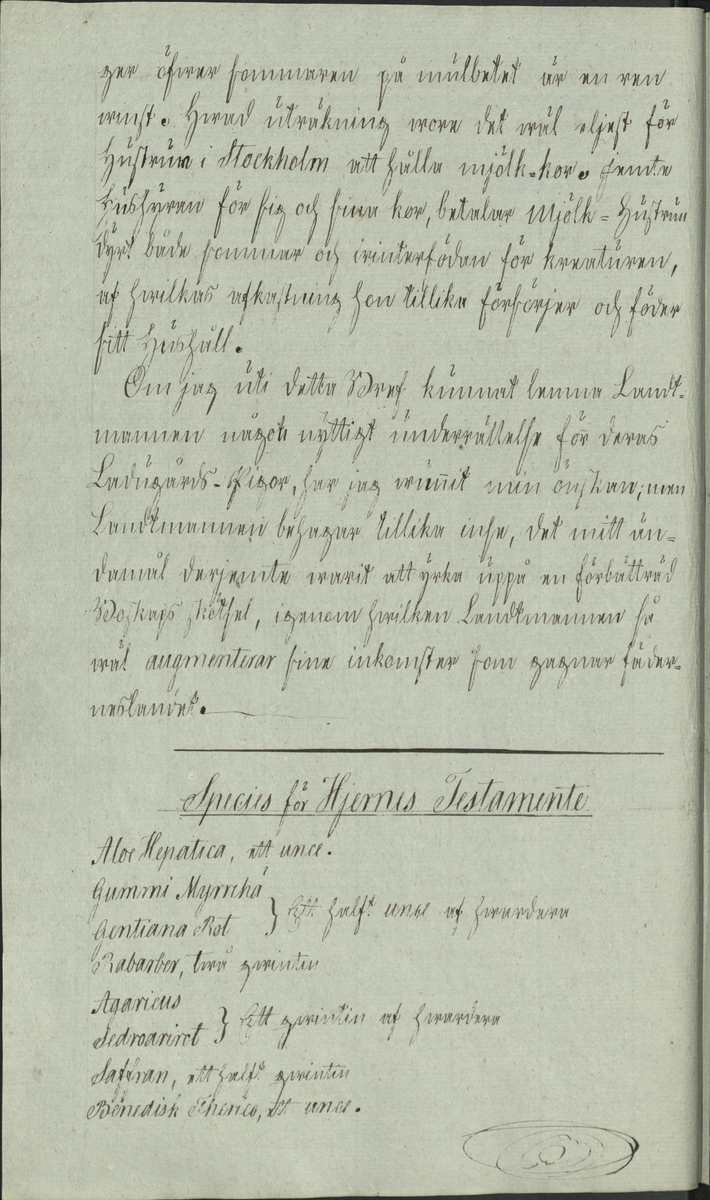 ger öfwer sommaren på mulbetet är en ren
winst. Hwad uträkning wore det wäl eljest för
Hustrun i Stockholm att hålla mjölk-kor. jemte
Hushyran för sig och sina kor, betalar Mjölk-Hustrun
dyrt både sommar och winterfödan för kreaturen,
af hwilkas afkastning hon tillika försörjer och föder
sitt Hushåll.
Om jag uti detta Bref kunnat lemna Landt-
mannen något nyttigt underrättelse för deras
Ladugårds-Pigor, har jag wunnit min önskan; men
Landtmannen behagar tillika inse, det mitt än-
damål derjemte warit att yrka uppå en förbättrad
Boskaps skötsel, igenom hwilken Landtmannen så
wäl augmenterar sine inkomster som gagnar fäder-
neslandet.
Species för Hjernes Testamente
Aloe Hepatica, ett unce.
Gummi Myrrchä
Gentiana Rot } Ett halft unce af hwardera
Rabarber, twå qwintin
Agaricus
Sedroarirot } Ett qwintin af hwardera
Saffran, ett halft qwintin
Benedisk Therico, ett unce.